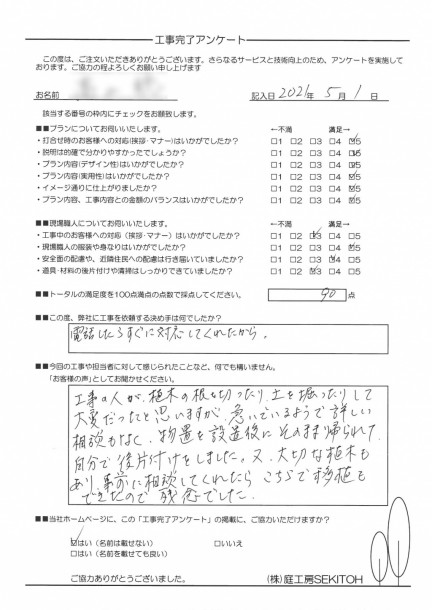 工事完了アンケート
この度は、ご注文いただきありがとうございます。さらなるサービスと技術向上のため、アンケートを実施して
おります。ご協力の程よろしくお願い申し上げます
お名前
記入日 2021年 5月 1日
該当する番号の枠内にチェックをお願致します。
■■プランについてお伺いいたします。 ←不満 満足→
・打合せ時のお客様への対応(挨拶・マナー)はいかがでしたか? □1 □2 □3 □4 ☑5
・説明は的確で分かりやすかったでしょうか? □1 □2 □3 □4 ☑5
・プラン内容(デザイン性)はいかがでしたか? □1 □2 □3 □4 ☑5
・プラン内容(実用性)はいかがでしたか? □1 □2 □3 □4 ☑5
・イメージ通りに仕上がりましたか? □1 □2 □3 □4 ☑5
・プラン内容、工事内容との金額のバランスはいかがでしたか? □1 □2 □3 □4 ☑5
■■現場職人についてお伺いいたします。 ←不満 満足→
・工事中のお客様への対応(挨拶・マナー)はいかがでしたか? □1 □2 ☑3 □4 □5
・現場職人の服装や身なりはいかがでしたか? □1 □2 ☑3 □4 □5
・安全面の配慮や、近隣住民への配慮は行き届いていましたか? □1 □2 □3 ☑4 □5
・道具・材料の後片付けや清掃はしっかりできていましたか? □1 □2 ☑3 □4 □5
■■トータルの満足度を100点満点の点数で採点してください。 90 点
■■この度、弊社に工事を依頼する決め手は何でしたか?
電話したらすぐに対応してくれたから。
■■今回の工事や担当者に対して感じられたことなど、何でも構いません。
「お客様の声」としてお聞かせください。
工事の人が、植木の根を切ったり、土を掘ったりして
大変だったと思いますが、急いでいるようで詳しい
相談もなく、物置を設置後にそのまま帰られて、
自分で後片付けをしました。又、大切な植木も
あり、事前に相談してくれたらこちらで移植も
できたので残念でした。
■■当社ホームページに、この「工事完了アンケート」の掲載に、ご協力いただけますか?
☑はい(名前は載せない) □いいえ
□はい(名前を載せても良い)
ご協力ありがとうございました。
(株)庭工房SEKITOH